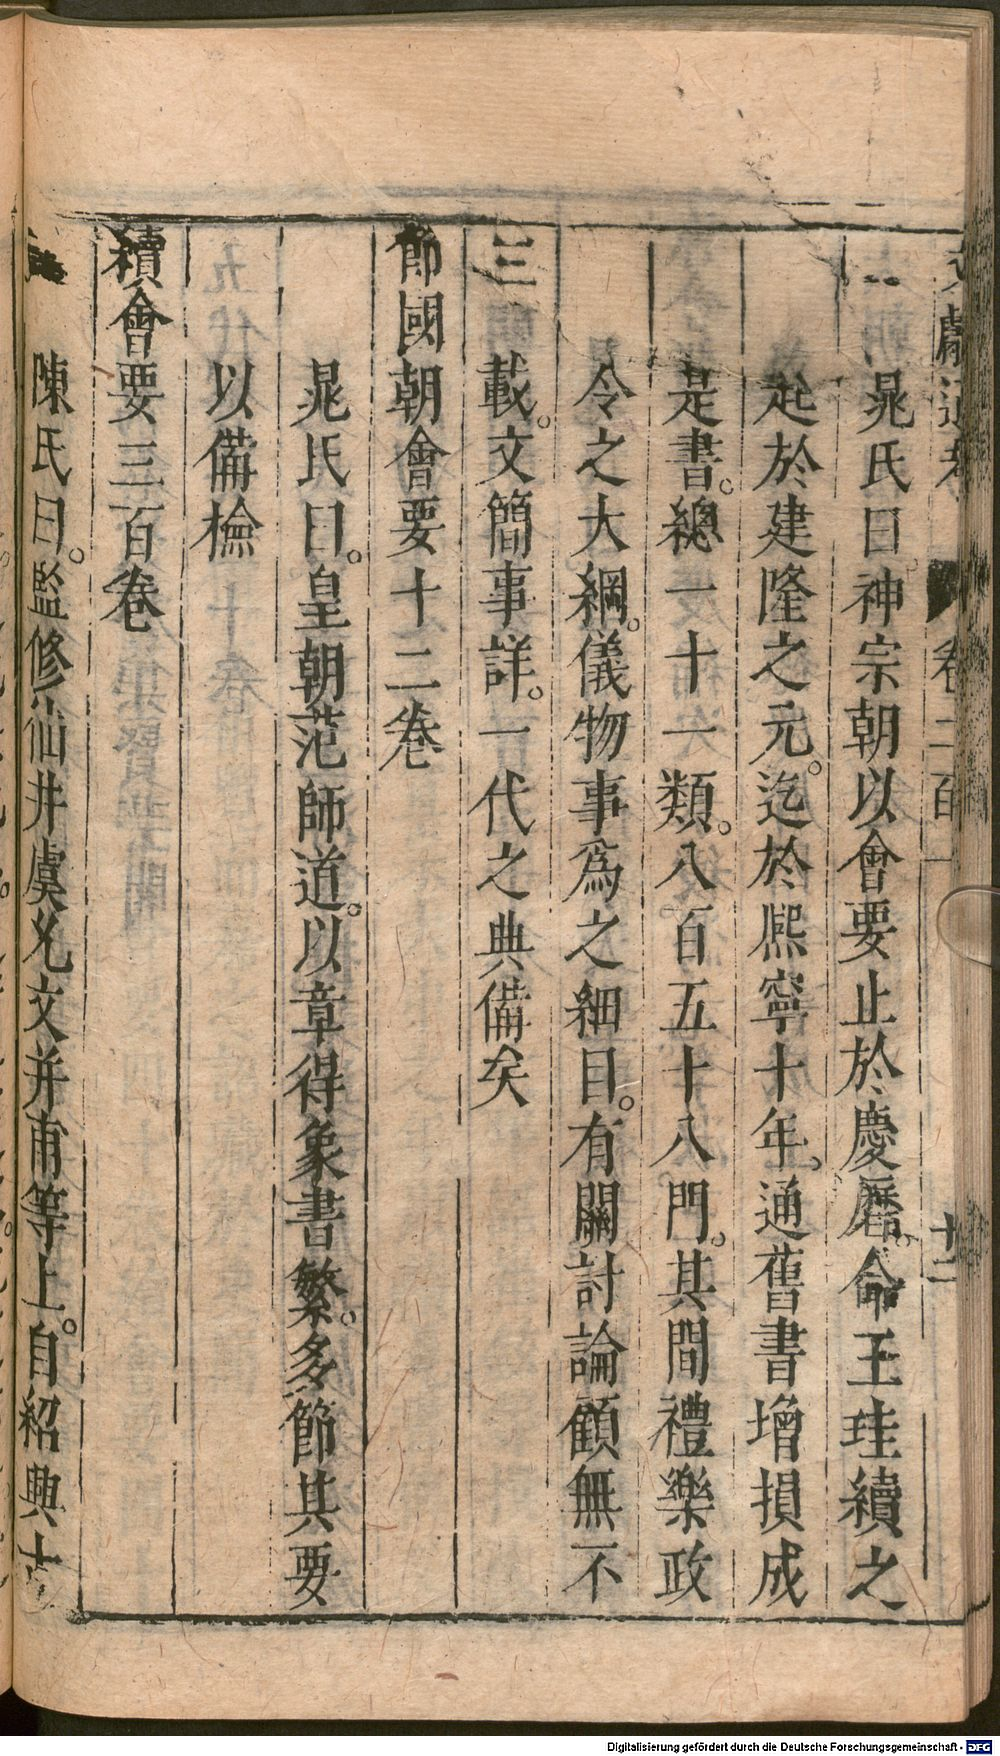 文獻通考 卷二百一 十二
晁氏曰神宗朝以會要止於慶曆。命王珪續之
起於建隆之元。迄於熈寧十年。通舊書增損成
是書。總一十一類。八百五十八門。其間禮樂政
令之大綱。儀物事爲之細目。有關討論顧無不
三
載。文簡事詳。一代之典備矣
節國朝會要十二卷
晁氏曰。皇朝范師道。以章得象書繁。多節其要
以備檢
續會要三百卷
陳氏曰。監修仙井虞允文并甫等上。自紹興
Digitalisierung gefördert durch die Deutsche Forschungsgemeinschaft - DFG